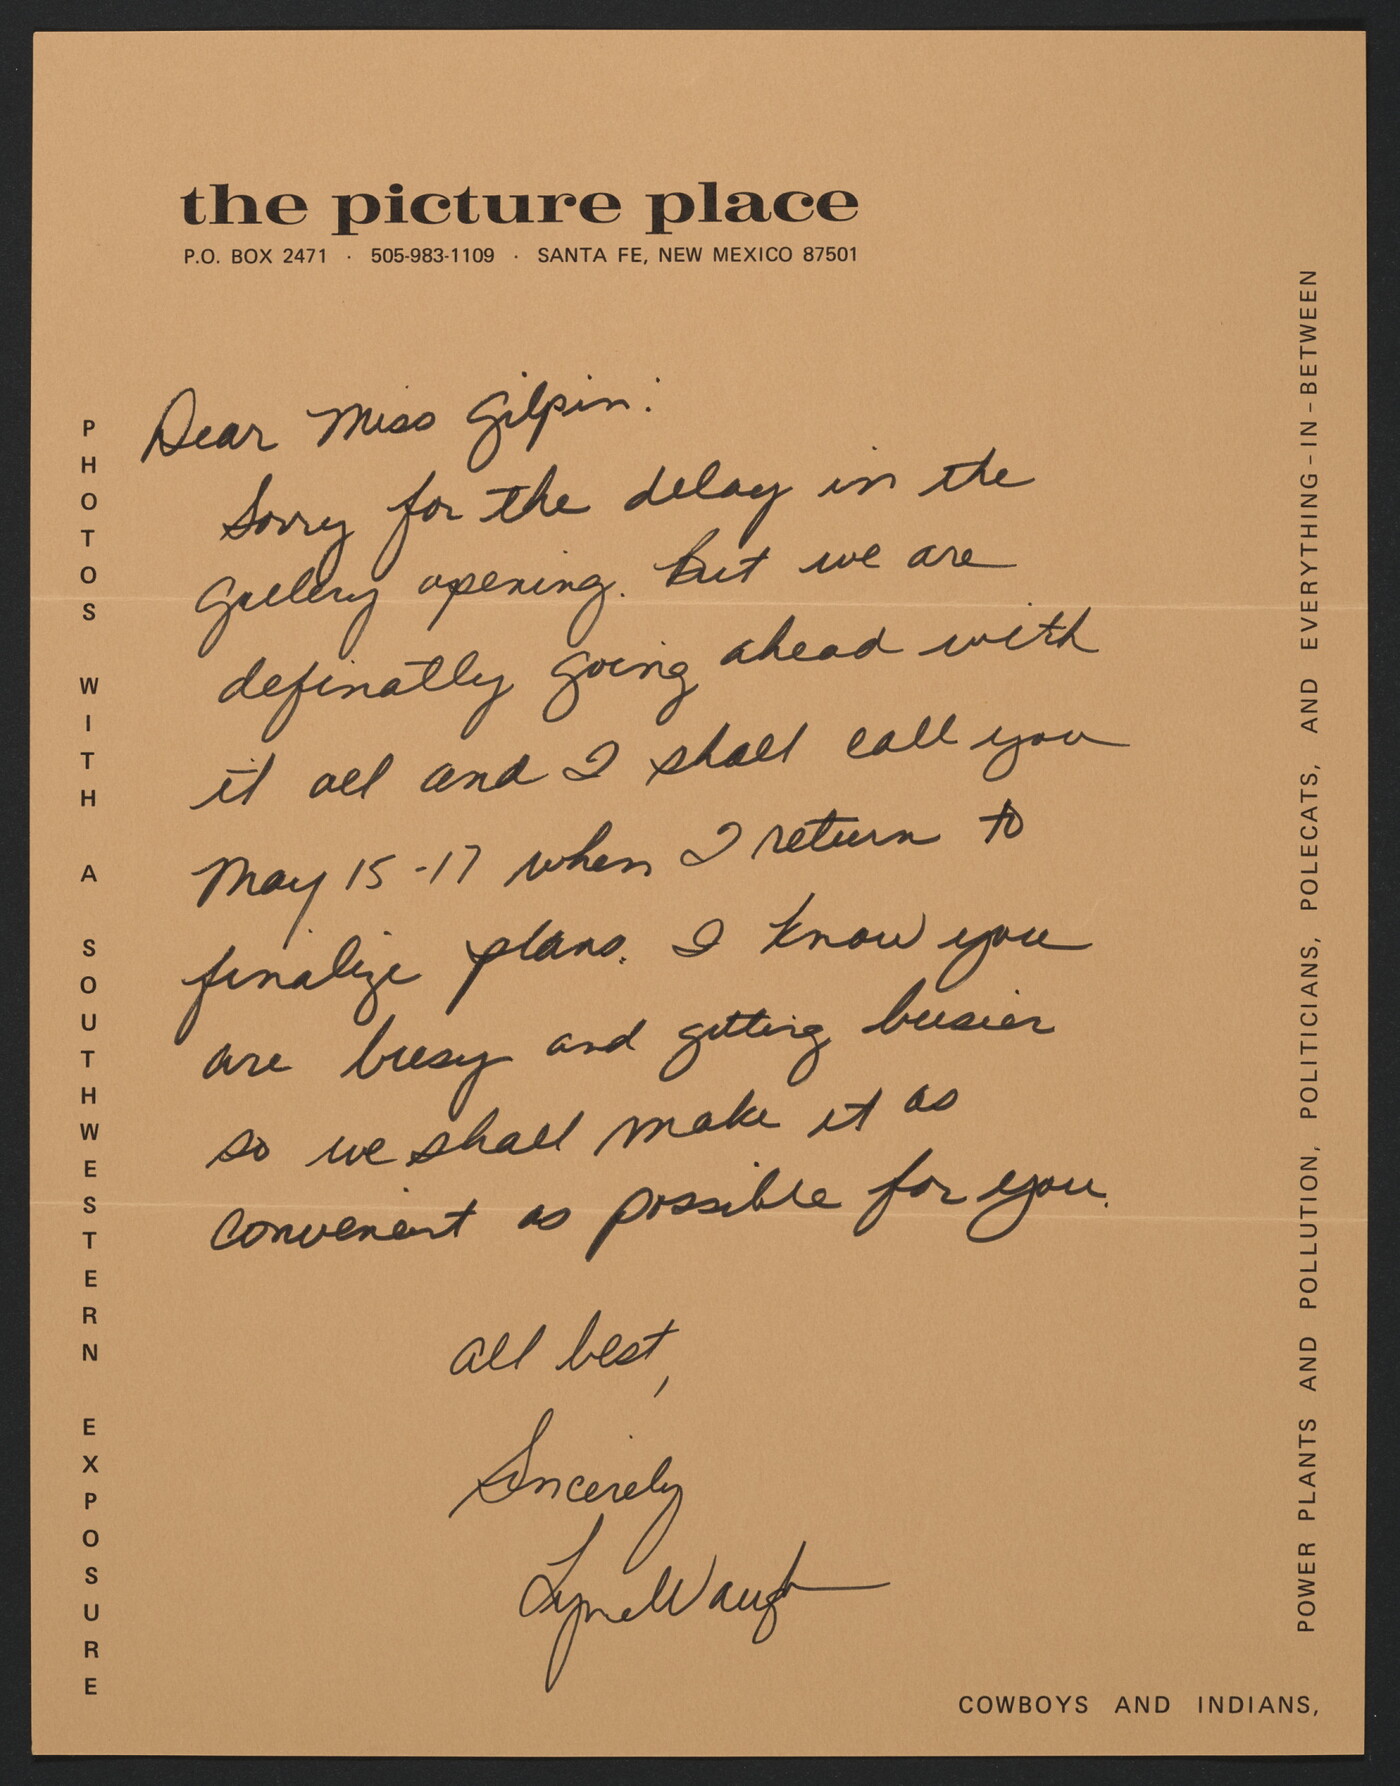 the picture place
P.O. BOX 2471 · 505-983-1109 · SANTA FE, NEW MEXICO 87501
Dear Miss Gilpin:
Sorry for the delay in the
gallery opening. But we are
definatly going ahead with
it all and I shall call you
May 15-17 when I return to
finalize plans. I know you
are busy and getting busier
so we shall make it as
convenient as possible for you.
All best,
Sincerely
Lyne Waugh
PHOTOS WITH A SOUTHWESTERN EXPOSURE
COWBOYS AND INDIANS,
POWER PLANTS AND POLLUTION, POLITICIANS, POLECATS, AND EVERYTHING-IN-BETWEEN